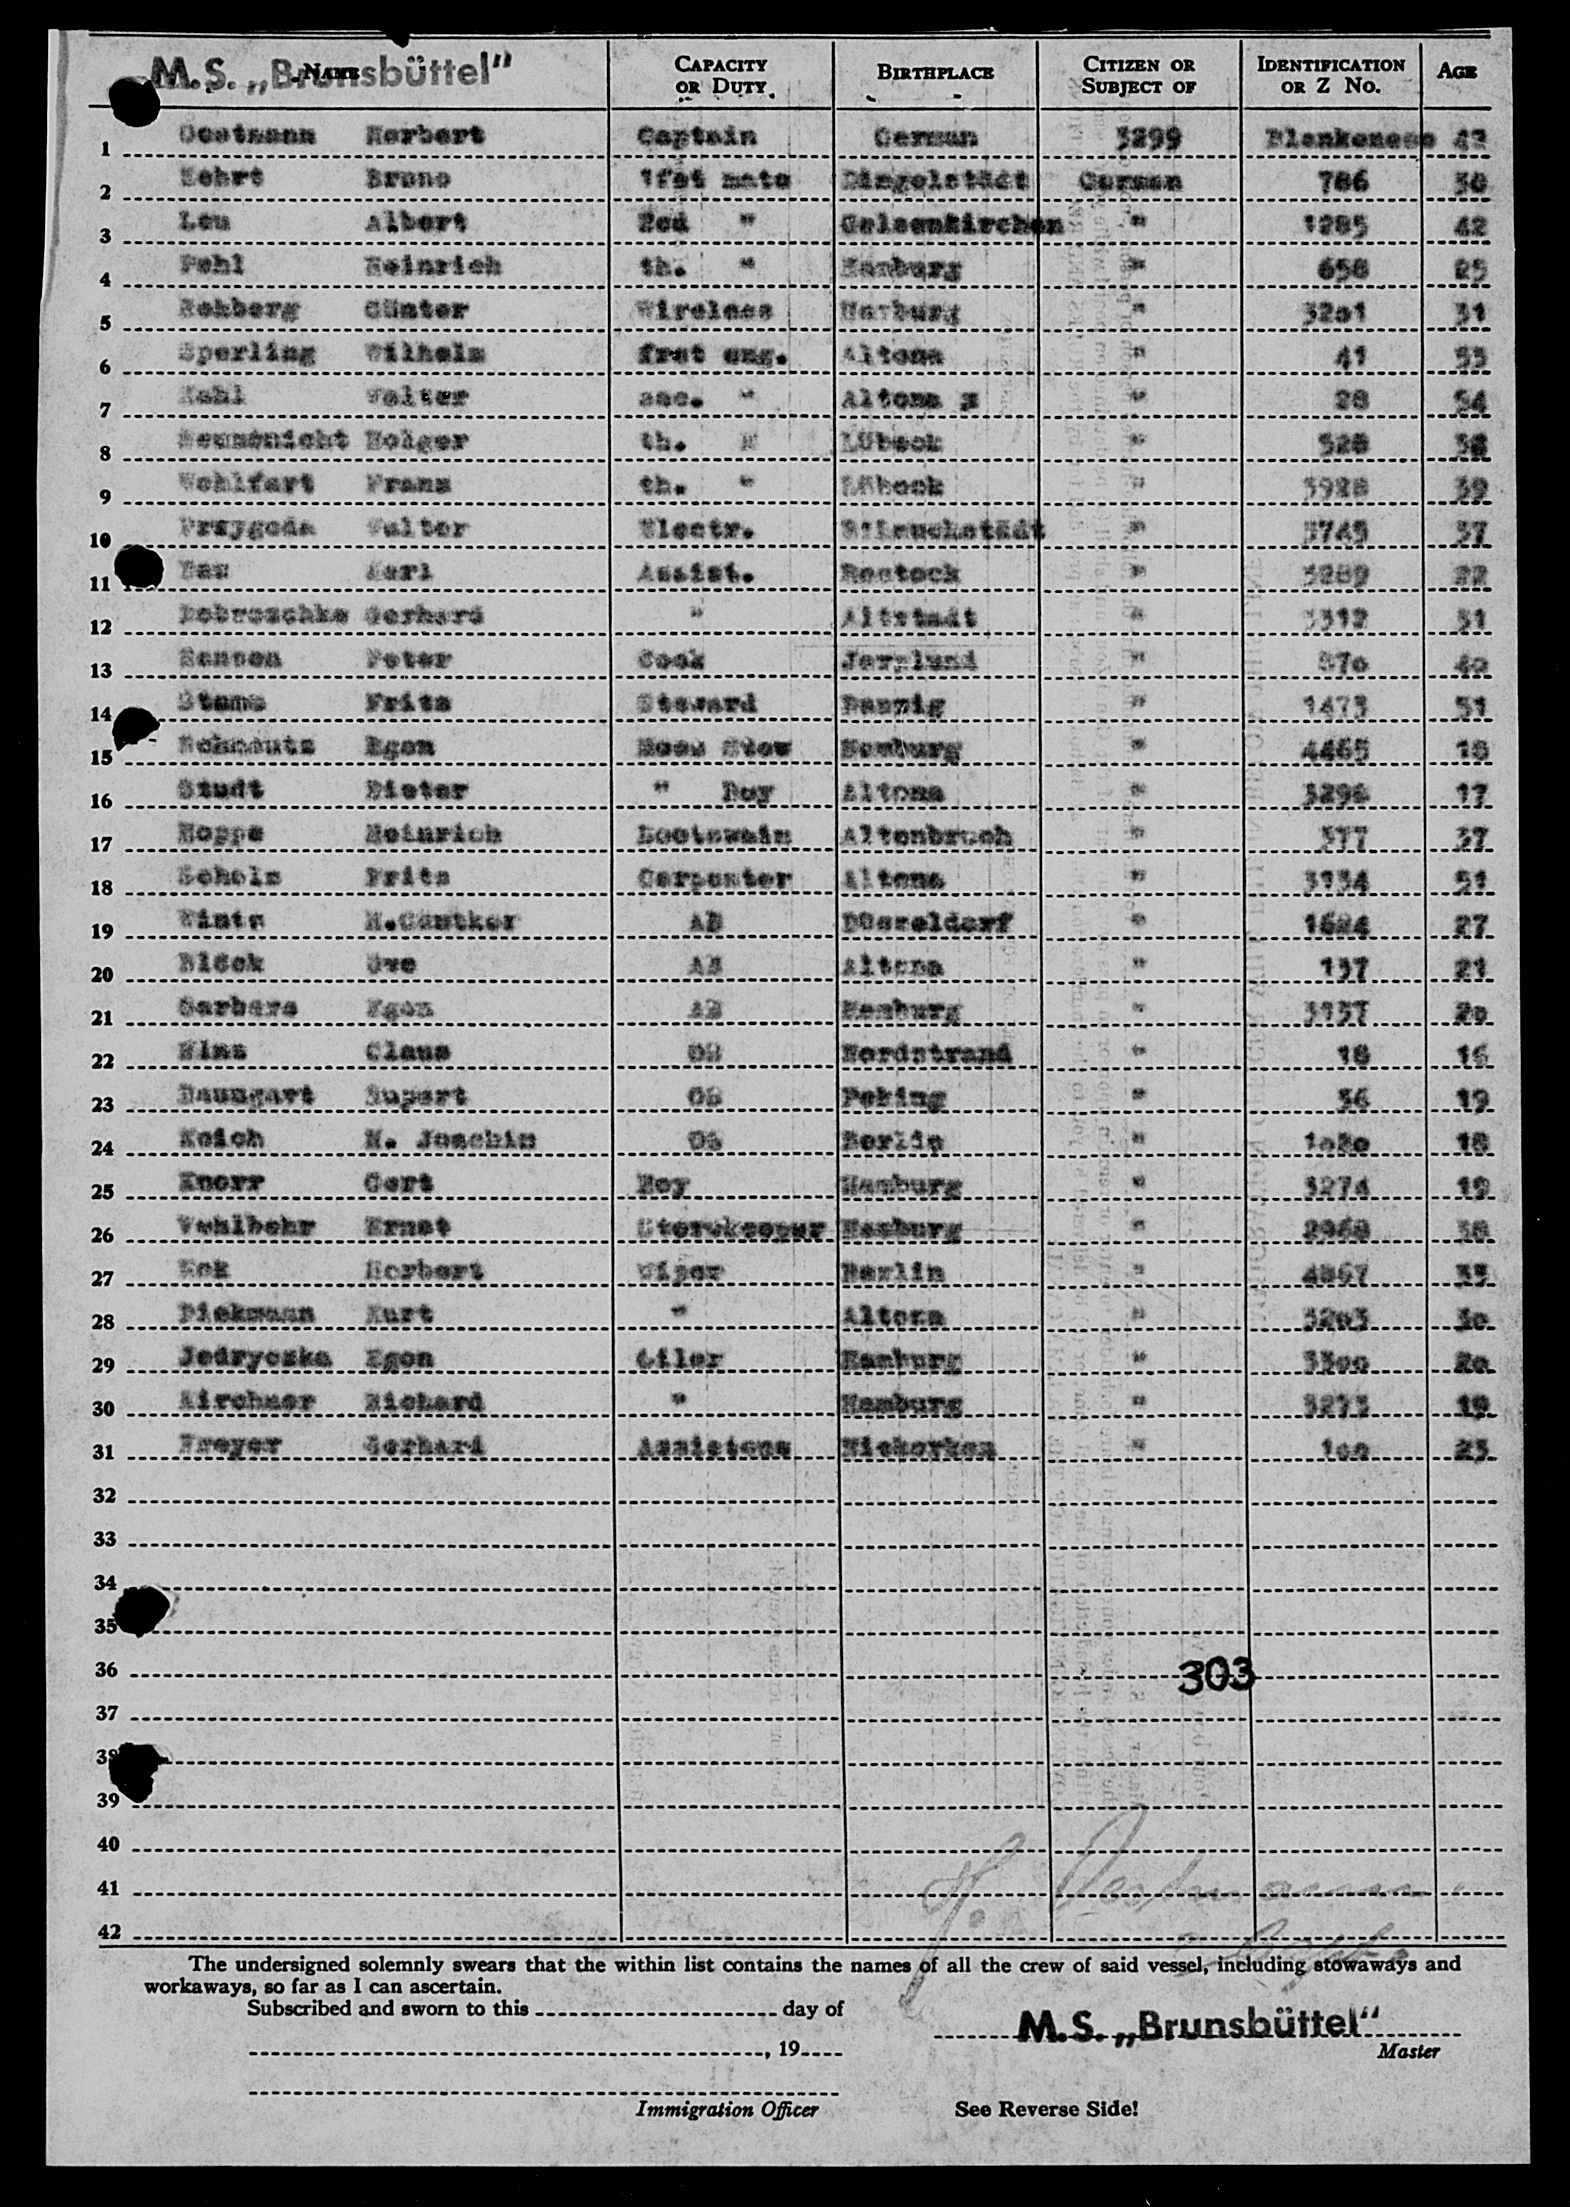 M.S. „Brunsbüttel“
NAME CAPACITY OR DUTY BIRTHPLACE CITIZEN OR SUBJECT OF IDENTIFICATION OR Z NO. AGE
1 Oestmann Herbert Captain German 3299 Blankenese 42
2 Kehrt Bruno 1fst mate Dingelstädt German 786 30
3 Leu Albert " Gelsenkirchen " 1285 42
4 Pohl Heinrich th. " Hamburg " 658 25
5 Rehberg Günter Wireless Harburg " 3201 31
6 Sperling Wilhelm frst eng. Altona " 41 53
7 Kahl Walter sec. " Altona " 28 54
8 Holger th. " Lübeck " 528 38
9 Wohlfart Franz th. " Lübeck " 3928 39
10 Przygoda Walter Electr. " 3745 37
11 Karl Assist. Rostock " 3289 22
12 Dobroschke Gerhard " Altstadt " 3312 31
13 Hansen Peter Cook Jerplund " 870 40
14 Fritz Steward Danzig " 1473 51
15 Egon Mess Stew Hamburg " 4465 18
16 Studt Dieter " Boy Altona " 3296 17
17 Hoppe Heinrich Bootswain Altenbruch " 377 37
18 Scholz Fritz Carpenter Altona " 3134 51
19 H.Günther AB Düsseldorf " 1624 27
20 Blöck Uwe AB Altona " 137 21
21 Garbers Egon AB Hamburg " 3137 20
22 Claus OS Nordstrand " 18 16
23 Baumgart Rupert OS Peking " 36 19
24 Koich H. Joachim OS Berlin " 1080 18
25 Knorr Gert Boy Hamburg " 3274 19
26 Wohlbehr Ernst Storekeeper Hamburg " 2968 38
27 Herbert Wiper Berlin " 4867 33
28 Diekmann Kurt " Altona " 3203 30
29 Jedryczka Egon Oiler Hamburg " 3300 20
30 Kirchner Richard " Hamburg " 3273 19
31 Freyer Gerhard " 100 23
32
33
34
35
36 303
37
38
39
40
41 H. Oestmann
42
The undersigned solemnly swears that the within list contains the names of all the crew of said vessel, including stowaways and
workaways, so far as I can ascertain.
Subscribed and sworn to this day of
M.S. „Brunsbüttel“
, 19
Master
Immigration Officer See Reverse Side!